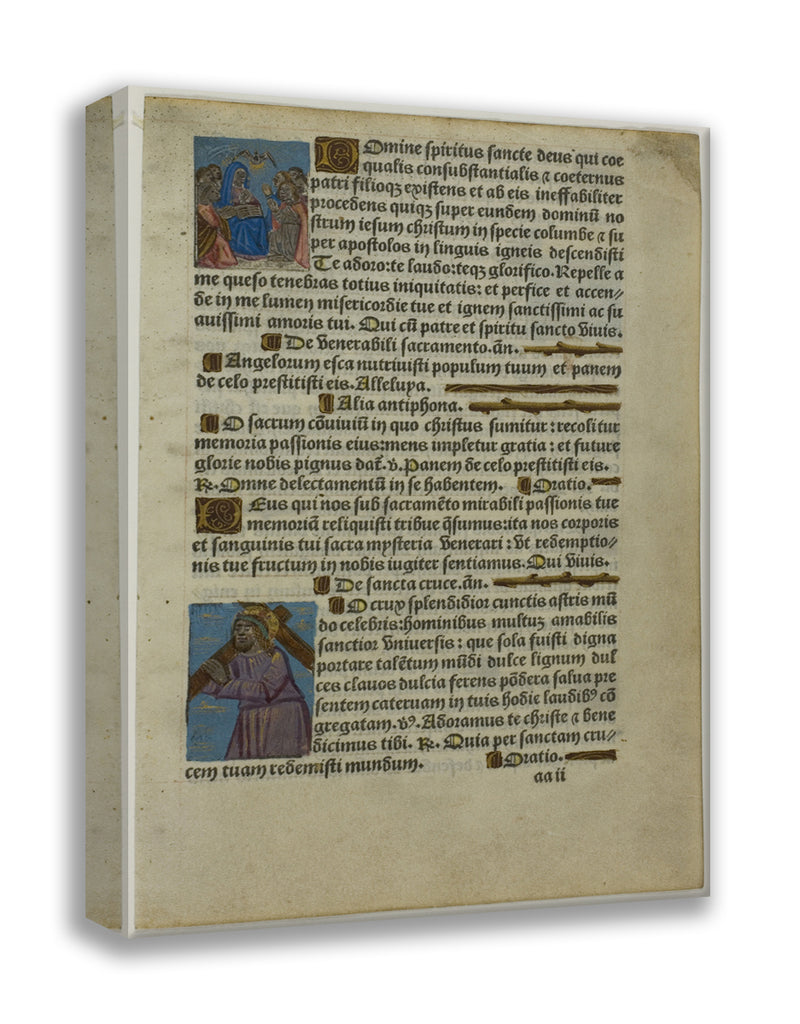 Domine spiritus sancte deus qui coe
qualis consubstantialis ⁊ coeternus
patri filioqꝫ existens et ab eis ineffabiliter
procedens quiqꝫ super eundem dominū no
strum iesum christum in specie columbe ⁊ su
per apostolos in linguis igneis descendisti
Te adoro:te laudo:teqꝫ glorifico. Repelle a
me queso tenebras totius iniquitatis: et perfice et accen⸗
de in me lumen misericordie tue et ignem sanctissimi ac su
auissimi amoris tui. Qui cū patre et spiritu sancto viuis.
De venerabili sacramento. añ.
Angelorum esca nutriuisti populum tuum et panem
de celo prestitisti eis. Alleluya.
Alia antiphona.
O sacrum cōuiuiū in quo christus sumitur: recolitur
memoria passionis eius: mens impletur gratia: et future
glorie nobis pignus dat̄. ꝟ. Panem de celo prestitisti eis.
℞. Omne delectamentū in se habentem. Oratio.
DEus qui nos sub sacramēto mirabili passionis tue
memoriā reliquisti tribue q̄sumus: ita nos corporis
et sanguinis tui sacra mysteria venerari: vt redemptio⸗
nis tue fructum in nobis iugiter sentiamus. Qui viuis.
De sancta cruce. añ.
O crux splendidior cunctis astris mū
do celebris: hominibus multuꝫ amabilis
sanctior vniuersis: que sola fuisti digna
portare talētum mūdi dulce lignum dul
ces clauos dulcia ferens pōdera salua pre
sentem cateruam in tuis hodie laudibꝰ cō
gregatam. ꝟꝰ. Adoramus te christe ⁊ bene
dicimus tibi. ℞. Quia per sanctam cru⸗
cem tuam redemisti mundum. Oratio.
aa ii